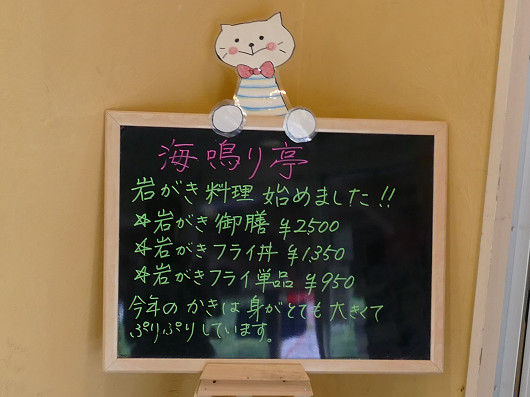 海鳴り亭
岩がき料理 始めました!!
☆岩がき御膳 ¥2500
☆岩がきフライ丼 ¥1,350
☆岩がきフライ単品 ¥950
今年の かきは 身がとても 大きくて
ぷりぷりしています。